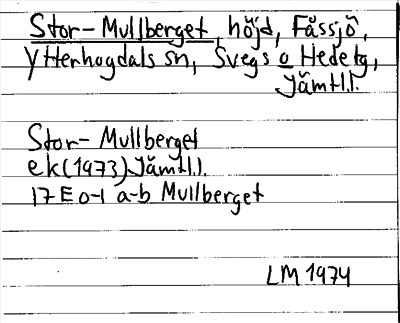 Stor-Mullberget, höjd, Fåssjö,
Ytterhogdals sn, Svegs o Hede tg,
Jämtl.l.
Stor-Mullberget
ek(1973) Jämtl.l.
17E 0-1 a-b Mullberget
LM 1974